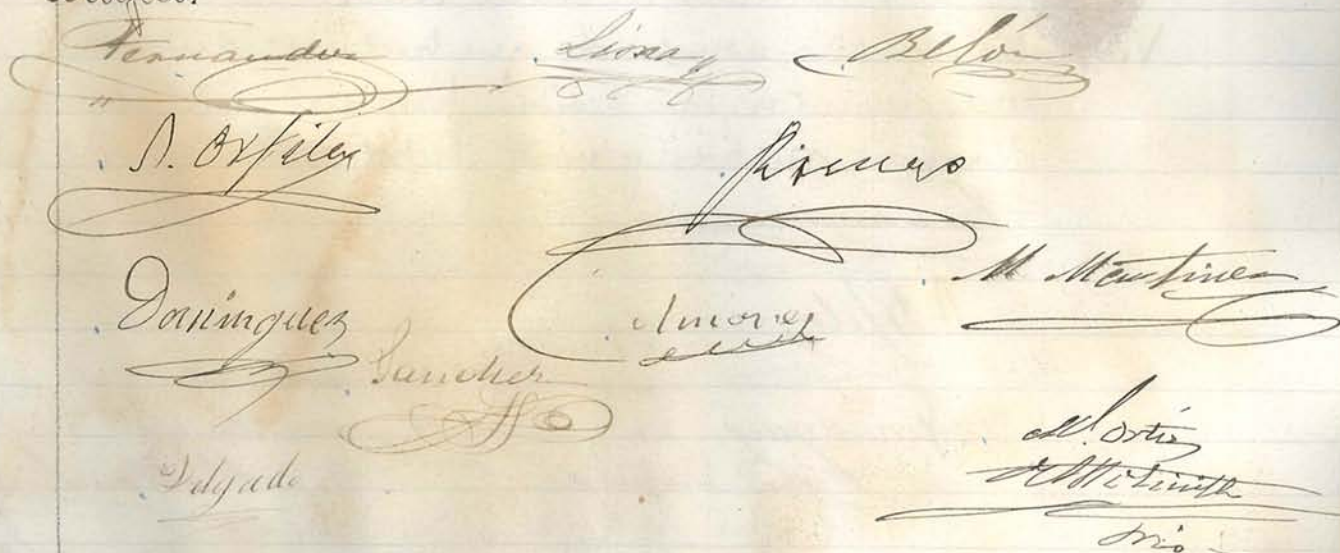 Fernandez Liona Belón
A. Orfila Romero
Dominguez Amores M Martinez
Sanchez
Delgado
M. Ortiz
Srio